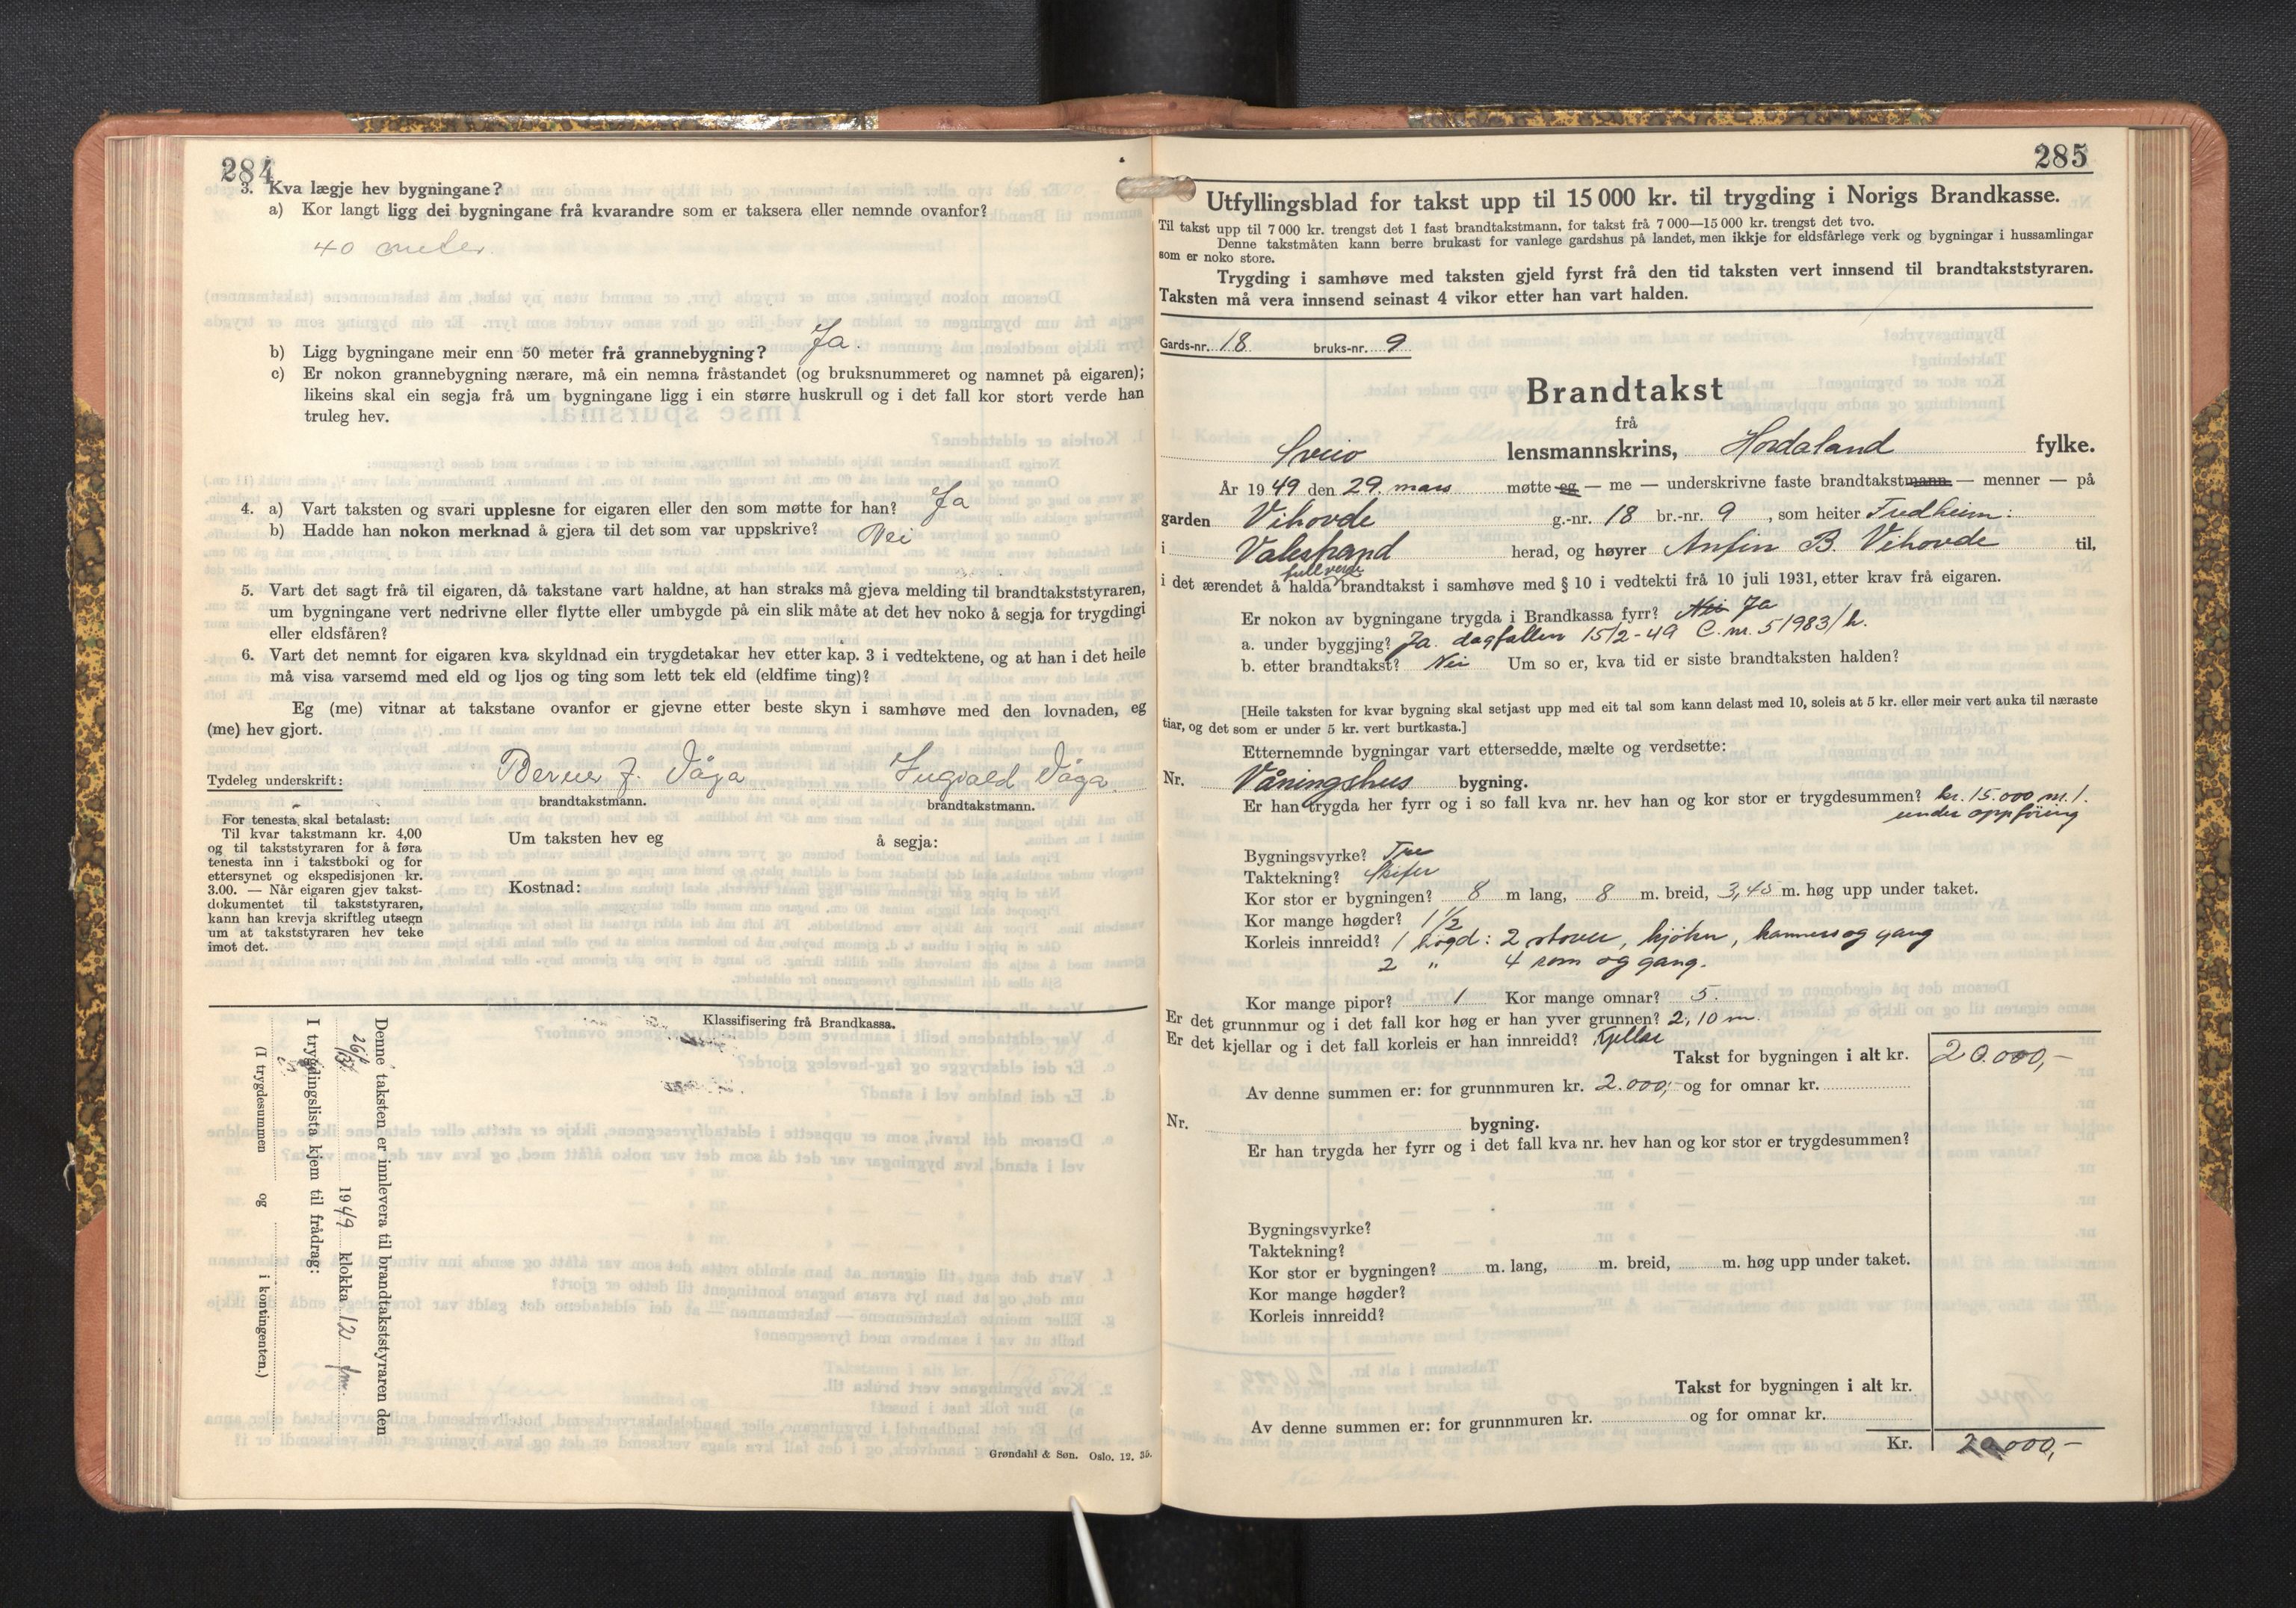 284
3. Kva lægje hev bygningane?
a) Kor langt ligg dei bygningane frå kvarandre som er taksera eller nemnde ovanfor?
40 meter.
b) Ligg bygningane meir enn 50 meter frå grannebygning? Ja.
c) Er nokon grannebygning nærare, må ein nemna fråstandet (og bruksnummeret og namnet på eigaren);
likeins skal ein segja frå um bygningane ligg i ein større huskrull og i det fall kor stort verde han
truleg hev.
4. a) Vart taksten og svari upplesne for eigaren eller den som møtte for han? Ja
b) Hadde han nokon merknad å gjera til det som var uppskrive? Nei
5. Vart det sagt frå til eigaren, då takstane vart haldne, at han straks må gjeva melding til brandtakststyraren,
um bygningane vert nedrivne eller flytte eller umbygde på ein slik måte at det hev noko å segja for trygdingi
eller eldsfåren?
6. Vart det nemnt for eigaren kva skyldnad ein trygdetakar hev etter kap. 3 i vedtektene, og at han i det heile
må visa varsemd med eld og ljos og ting som lett tek eld (eldfime ting)?
Eg (me) vitnar at takstane ovanfor er gjevne etter beste skyn i samhøve med den lovnaden, eg
(me) hev gjort.
Tydeleg underskrift: J. Våga Ingvald Våga.
brandtakstmann. brandtakstmann.
For tenesta skal betalast:
Til kvar takstmann kr. 4,00
og til takststyraren for å føra
tenesta inn i takstboki og for
ettersynet og ekspedisjonen kr.
3.00. — Når eigaren gjev takst-
dokumentet til takststyraren,
kann han krevja skriftleg utsegn
um at takststyraren hev teke
imot det.
Um taksten hev eg å segja:
Kostnad:
Klassifisering frå Brandkassa.
Denne taksten er innlevera til brandtakststyraren den
1949 klokka 12 fm.
I trygdingslista kjem til frådrag:
(I trygdesummen og i kontingenten.)
Grøndahl & Søn. Oslo. 12. 35.
285
Utfyllingsblad for takst upp til 15 000 kr. til trygding i Norigs Brandkasse.
Til takst upp til 7 000 kr. trengst det 1 fast brandtakstmann, for takst frå 7 000—15 000 kr. trengst det tvo.
Denne takstmåten kann berre brukast for vanlege gardshus på landet, men ikkje for eldsfårlege verk og bygningar i hussamlingar
som er noko store.
Trygding i samhøve med taksten gjeld fyrst frå den tid taksten vert innsend til brandtakststyraren.
Taksten må vera innsend seinast 4 vikor etter han vart halden.
Gards-nr. 18 bruks-nr. 9
Brandtakst
frå
Sveio lensmannskrins, Hordaland fylke.
År 1949 den 29. mars møtte eg — me — underskrivne faste brandtakstmann — menner — på
garden Vihovde g.-nr. 18 br.-nr. 9, som heiter Fredheim:
i Valestrand herad, og høyrer Anfin B. Vihovde til,
fullverde
i det ærendet å halda brandtakst i samhøve med § 10 i vedtekti frå 10 juli 1931, etter krav frå eigaren.
Er nokon av bygningane trygda i Brandkassa fyrr? Nei Ja
a. under byggjing? Ja. dagfallen 15/2-49 C. nr. 51983/h.
b. etter brandtakst? Nei Um so er, kva tid er siste brandtaksten halden?
[Heile taksten for kvar bygning skal setjast upp med eit tal som kann delast med 10, soleis at 5 kr. eller meir vert auka til næraste
tiar, og det som er under 5 kr. vert burtkasta.]
Etternemnde bygningar vart ettersedde, mælte og verdsette:
Nr. Våningshus bygning.
Er han trygda her fyrr og i so fall kva nr. hev han og kor stor er trygdesummen? kr. 15.000 nr. 1.
under oppföring
Bygningsvyrke? Tre
Taktekning? Skifer
Kor stor er bygningen? 8 m lang, 8 m. breid, 3,45 m. høg upp under taket.
Kor mange høgder? 1 1/2
Korleis innreidd? 1 högd: 2 stover, kjöken, kammers og gang
2 " 4 rom og gang.
Kor mange pipor? 1 Kor mange omnar? 5.
Er det grunnmur og i det fall kor høg er han yver grunnen? 2,10 m.
Er det kjellar og i det fall korleis er han innreidd? Kjellar
Takst for bygningen i alt kr. 20.000,-
Av denne summen er: for grunnmuren kr. 2.000,- og for omnar kr.
Nr. bygning.
Er han trygda her fyrr og i det fall kva nr. hev han og kor stor er trygdesummen?
Bygningsvyrke?
Taktekning?
Kor stor er bygningen? m. lang, m. breid, m. høg upp under taket.
Kor mange høgder?
Korleis innreidd?
Takst for bygningen i alt kr.
Av denne summen er: for grunnmuren kr. og for omnar kr.
Kr. 20000,-